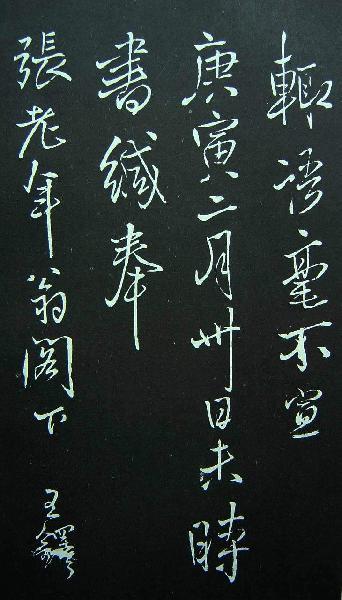 輙语之毫不宣
庚寅二月卅日未時
書緘奉
張老年翁閣下
王鐸